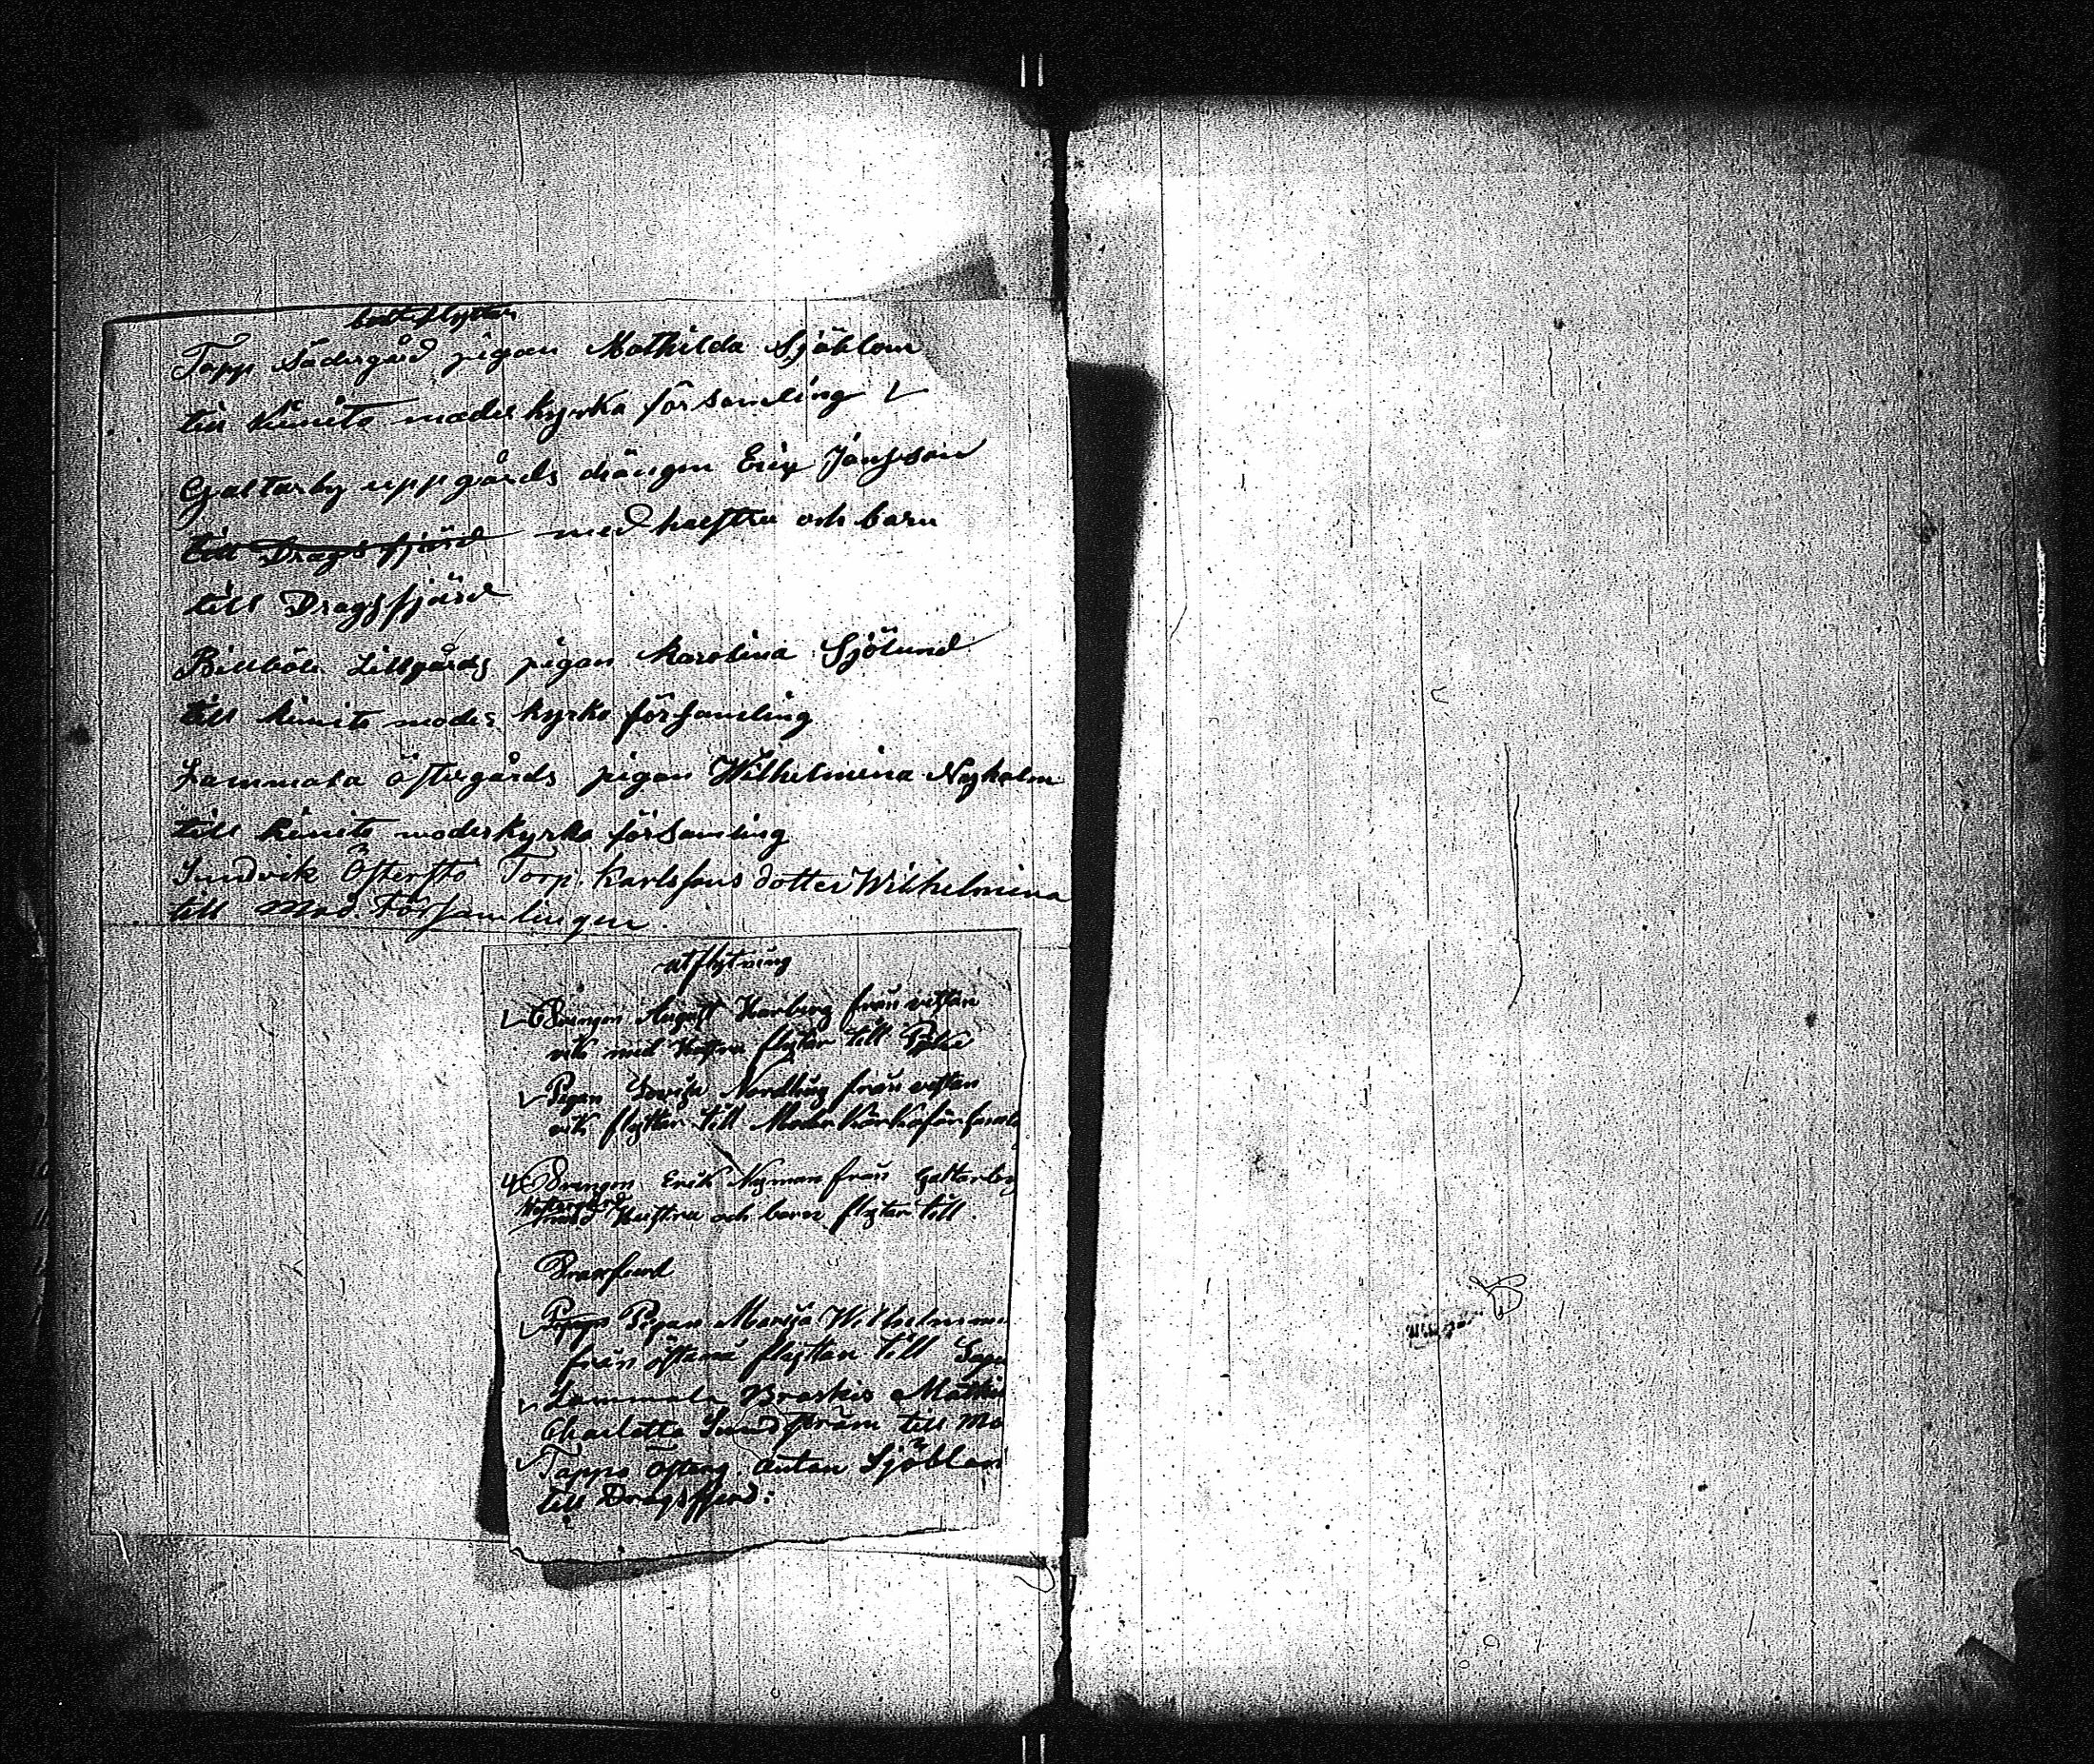 bortflyttar
Tapp Södergård pigan Mathilda Sjöblom
till Kimito moder kyrka församling
Galtarby uppgårds drängen Erik Jansson
till Dragsfjärd med husstru och barn
till Dragsfjärd
Billböle Lillgårds pigan Karolina Sjölund
till kimito moder kyrko församling
Lammala östergårds pigan Wilhelmina Nyholm
till kimito moderkyrko församling
Sundvik Österstö Torp. Karlssons dotter Wilhelmina
till Mod. Församlingen.
utflytning
Drengen August Karberg från vestan
vik med flytar till
Pigan Lovisa Nordberg från vestan
vik flyttar till Moder
Drengen Erik Nyman från Galtarby
Westergård
med Hustru och barn flytar till
Pigan Marija Wilhelmina
från östanå flyttar till
Lammala Braskis
Charlotta Sundström till Mo
Tappo Österg. Sjöblom
till Dragsfjerd: